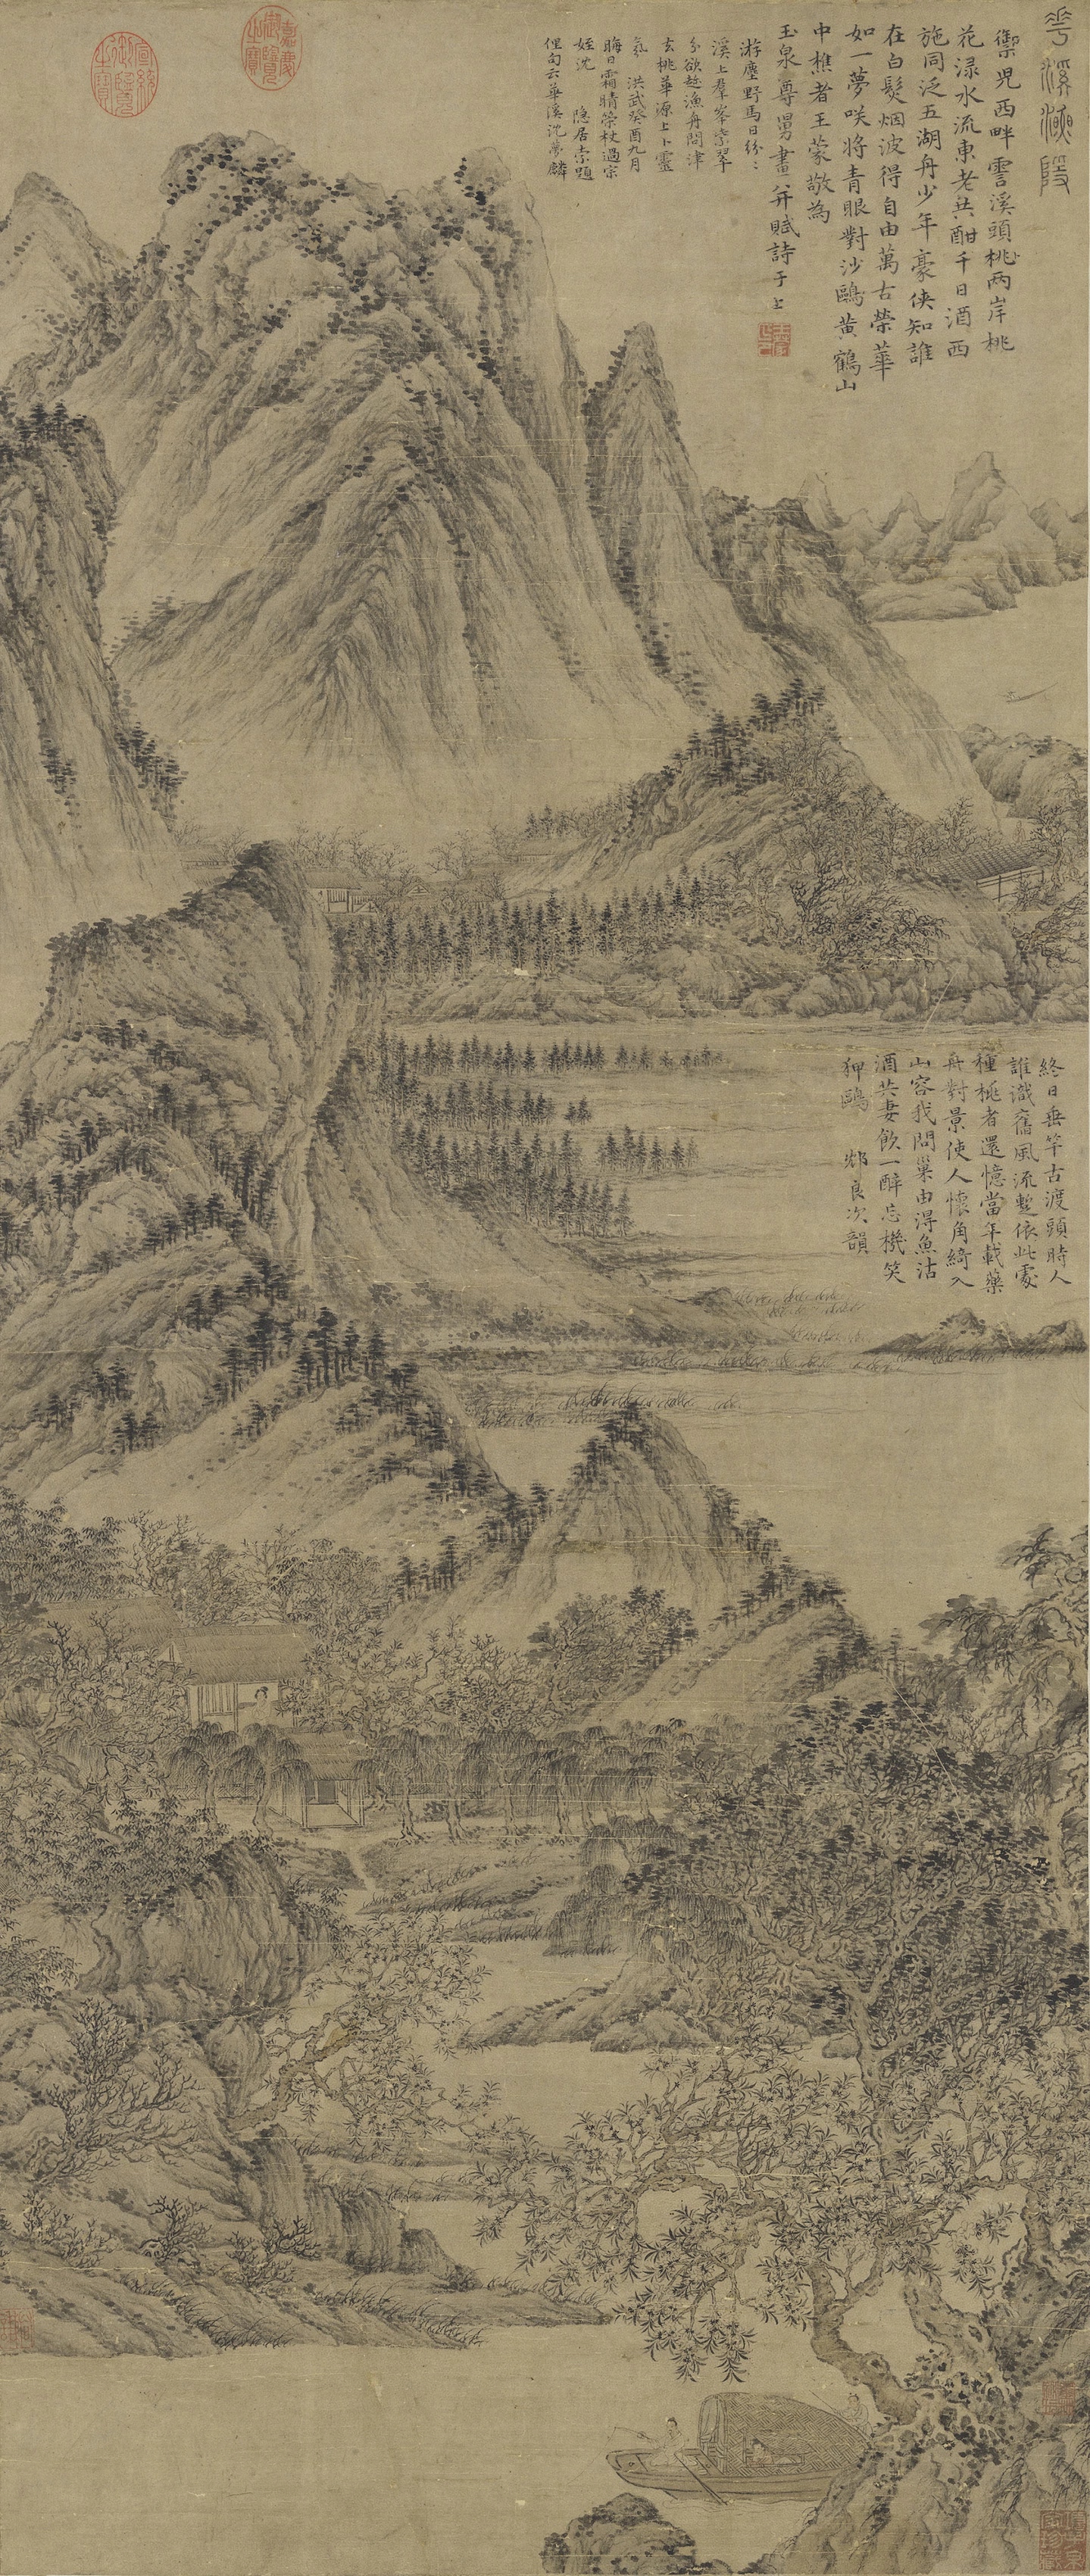 花溪漁隱
御兒西畔霅溪頭桃兩岸桃
花渌水流東老共酣千日酒西
施同泛五湖舟少年豪俠知誰
在白髮烟波得自由萬古榮華
如一夢咲將青眼對沙鷗黄鶴山
中樵者王蒙敬為
玉泉尊舅畫并賦詩于上
游塵野馬日紛〻
溪上羣峯紫翠
分欲趁漁舟問津
去桃華源上卜靈
氛 洪武癸酉九月
晦日霜晴榮杖過宗
姪沈 隱居索題
俚句云華溪沈夢麟
終日垂竿古渡頭時人
誰識舊風流暫依此處
種桃者還憶當年載藥
舟對景使人懷角綺入
山容我問巢由得魚沽
酒共妻飲一醉忘機笑
狎鷗 郯良次韻
嘉慶御覽之寶
宣統御覽之寶